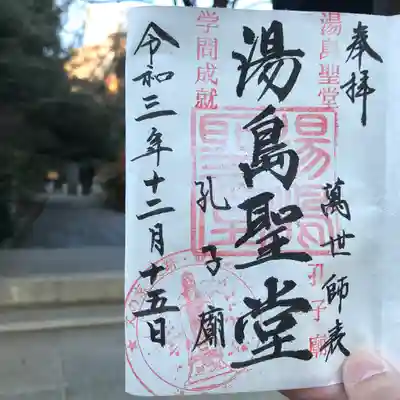 奉拝
萬世師表
湯島聖堂
孔子廟
湯島聖堂
孔子廟
学問成就
令和三年十二月十五日
湯島聖堂